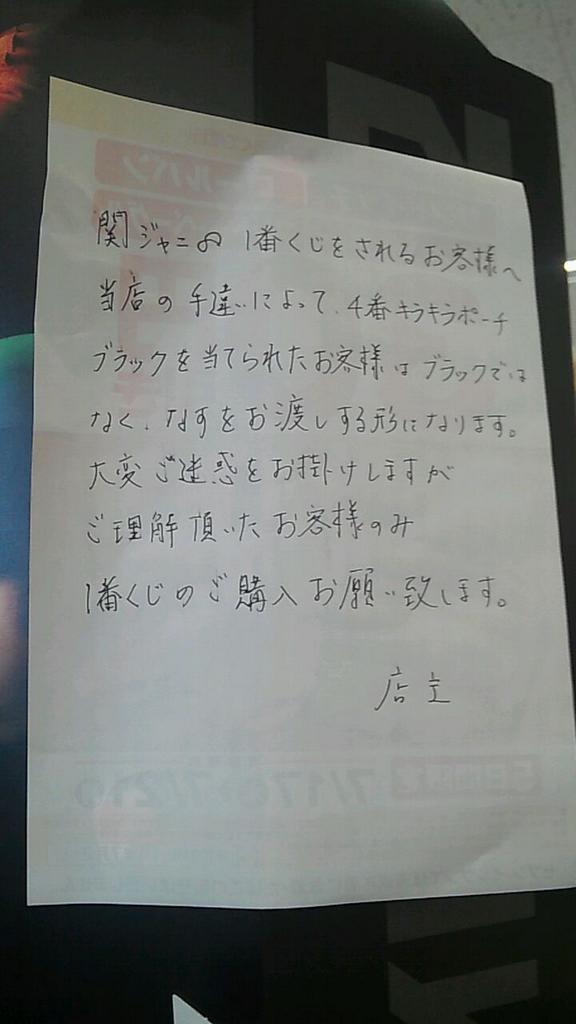 関ジャニ∞ 1番くじをされるお客様へ
当店の手違いによって、4番キラキラポーチ
ブラックを当てられたお客様はブラックでは
なく、なすをお渡しする形になります。
大変ご迷惑をお掛けしますが
ご理解頂いたお客様のみ
1番くじのご購入お願い致します。
店主